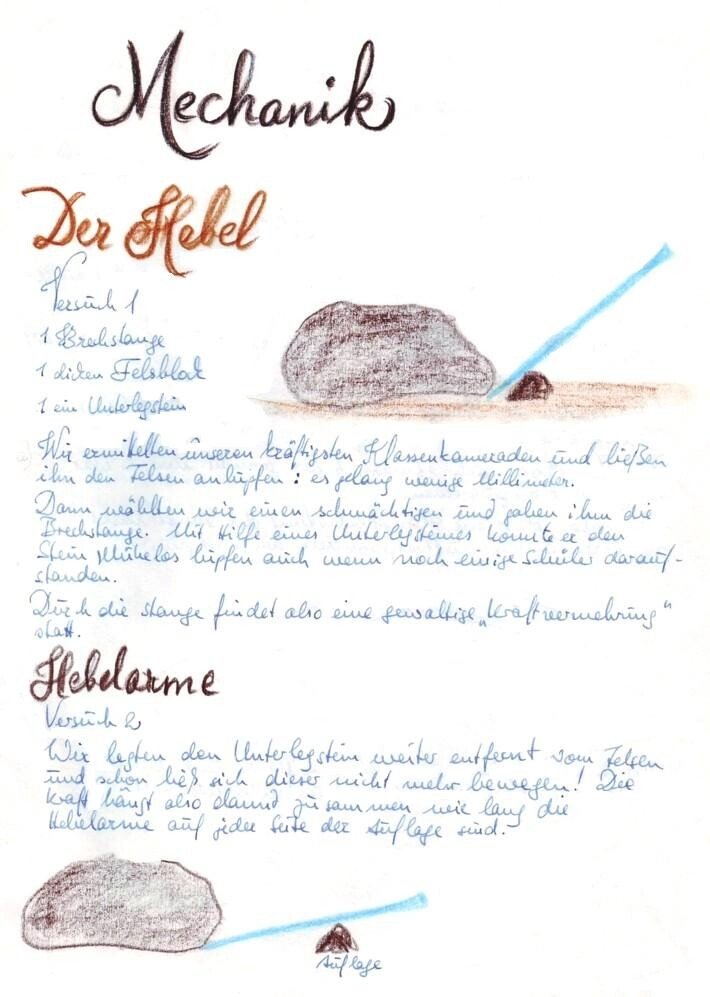 Mechanik
Der Hebel
Versuch 1
1 Brechstange
1 dicken Felsblock
1 ein Unterlegstein
Wir ermittelten unseren kräftigsten Klassenkameraden und ließen
ihn den Felsen anlüpfen: es gelang wenige Millimeter.
Dann wählten wir einen schmächtigen und gaben ihm die
Brechstange. Mit Hilfe eines Unterlegsteines konnte er den
Stein Mühelos lüpfen auch wenn noch einige Schüler darauf-
standen.
Durch die Stange findet also eine gewaltige „Kraftvermehrung“
statt.
Hebelarme
Versuch 2
Wir legten den Unterlegstein weiter entfernt vom Felsen
und schon ließ sich dieser nicht mehr bewegen! Die
Kraft hängt also damit zusammen wie lang die
Hebelarme auf jeder Seite der Auflage sind.
Auflage